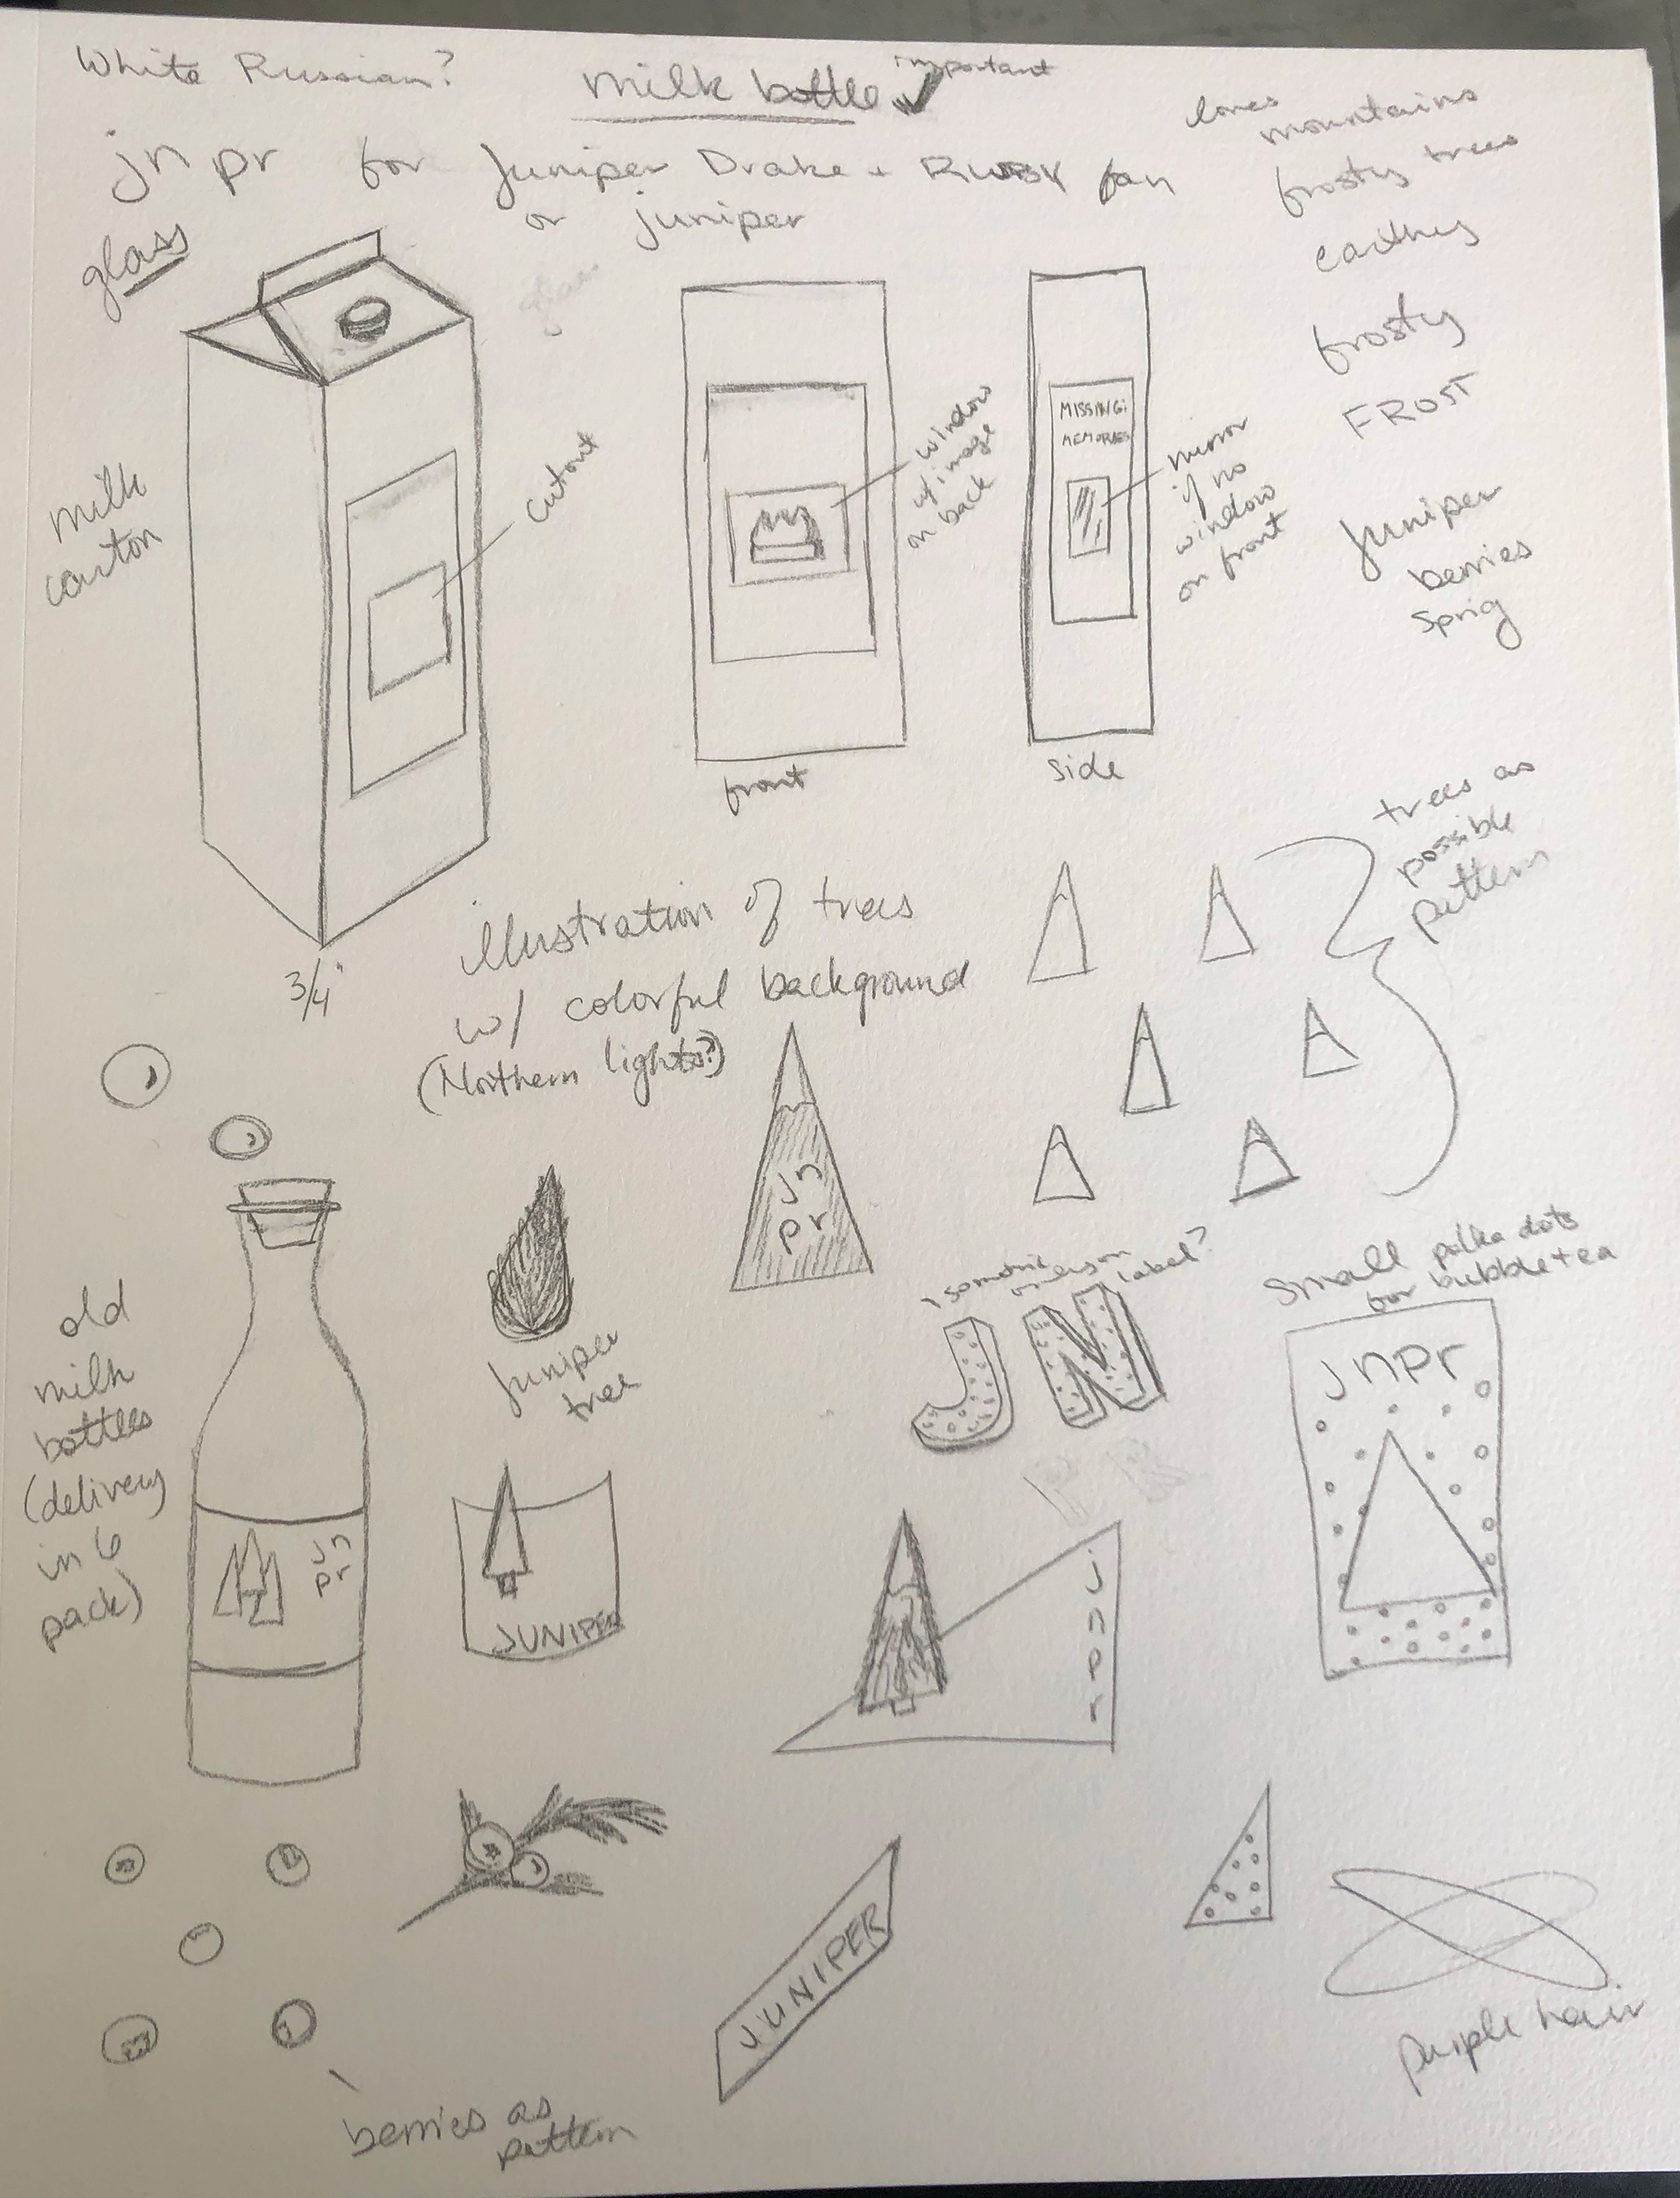 White Russian?
milk bottle
important
jn pr for Juniper Drake + RWBY fan
or juniper
loves
mountains
frosty trees
earthy
frosty
FROST
juniper
berries
sprig
glass
glass
milk
carton
cutout
window
w/ image
on back
MISSING:
MEMORIES
mirror
if no
window
on front
front
side
3/4"
illustration of trees
w/ colorful background
(Northern lights?)
trees as
possible
pattern
jn
pr
juniper
tree
isometric
label?
JN
PR
small polka dots
for bubble tea
jnpr
old
milk
bottles
(delivery
in 6
pack)
jn
pr
JUNIPER
j
n
p
r
JUNIPER
purple hair
berries as
pattern